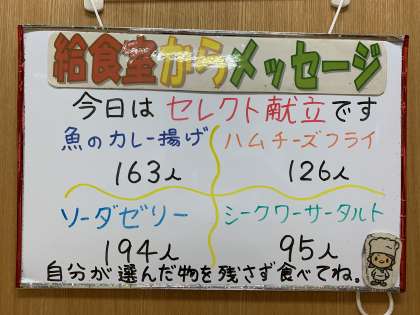 給食室からメッセージ
今日は セレクト献立です
魚のカレー揚げ ハムチーズフライ
163人 126人
ソーダゼリー シークワーサータルト
194人 95人
自分が選んだ物を残さず食べてね。